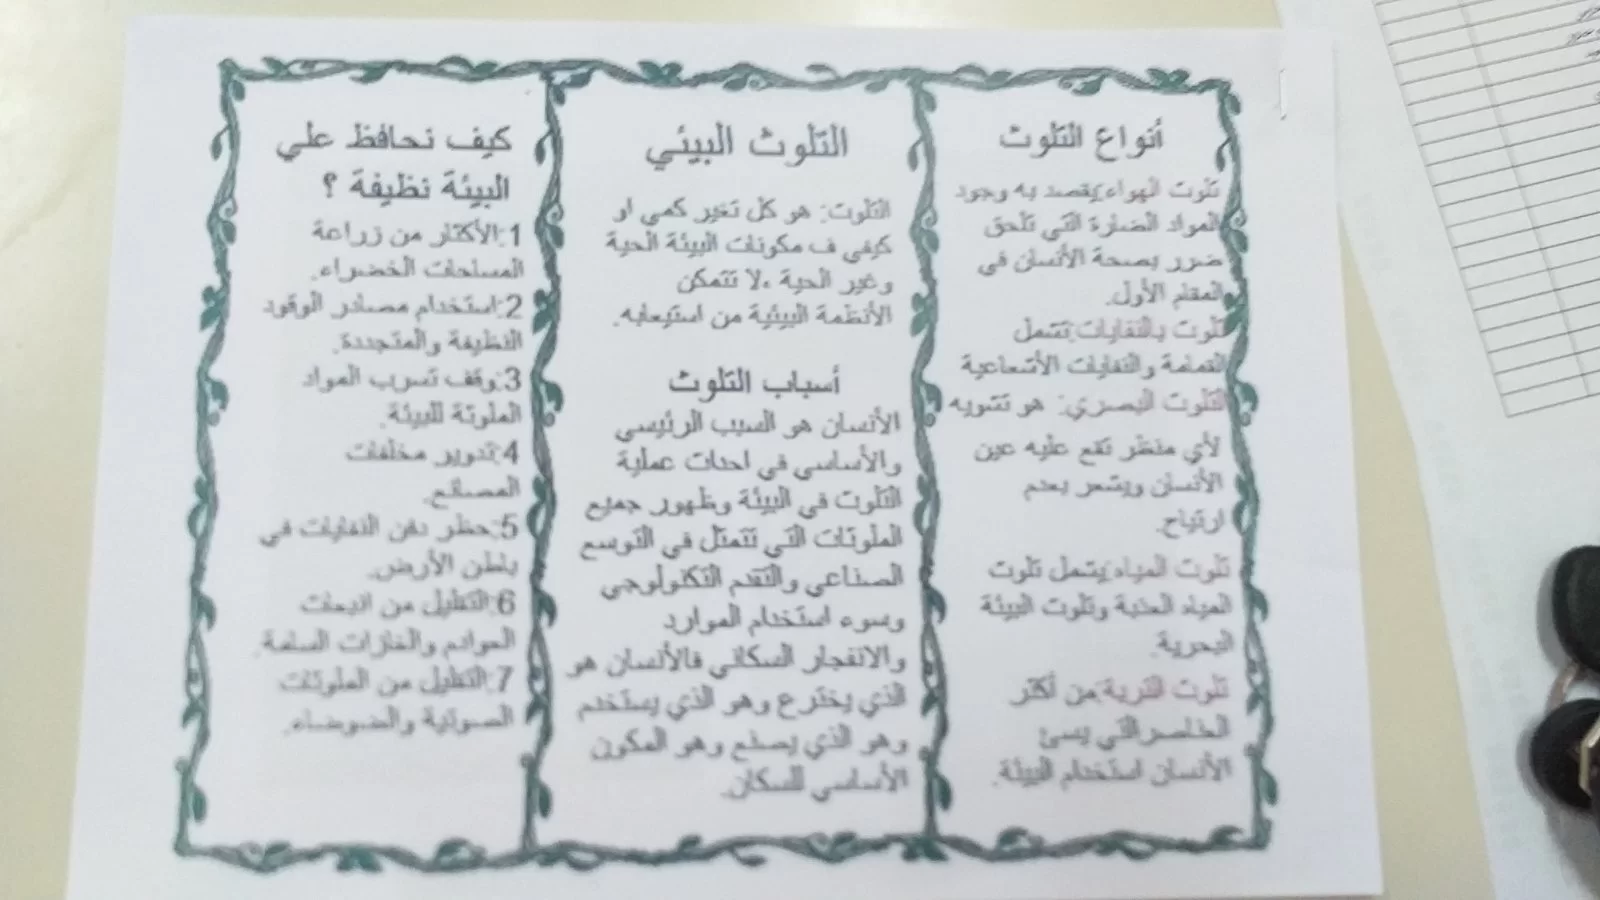 أنواع التلوث
تلوث الهواء:يقصد به وجود
المواد الضارة التي تلحق
ضرر بصحة الأنسان في
المقام الأول.
تلوث بالنفايات:تشمل
القمامة والنفايات الأشعاعية
التلوث البصري: هو تشويه
لأي منظر تقع عليه عين
الأنسان ويشعر بعدم
ارتياح.
تلوث المياه:يشمل تلوث
المياه العذبة وتلوث البيئة
البحرية.
تلوث التربة:من أكثر
العناصر التي يسئ
الأنسان استخدام البيئة.
التلوث البيئي
التلوث: هو كل تغير كمي او
كيفي ف مكونات البيئة الحية
وغير الحية ،لا تتمكن
الأنظمة البيئية من استيعابه.
أسباب التلوث
الأنسان هو السبب الرئيسي
والأساسي في احداث عملية
التلوث في البيئة وظهور جميع
الملوثات التي تتمثل في التوسع
الصناعي والتقدم التكنولوجي
وسوء استخدام الموارد
والانفجار السكاني فالأنسان هو
الذي يخترع وهو الذي يستخدم
وهو الذي يصنع وهو المكون
الأساسي للسكان.
كيف نحافظ علي
البيئة نظيفة ؟
1:الأكثار من زراعة
المساحات الخضراء.
2:استخدام مصادر الوقود
النظيفة والمتجددة.
3:وقف تسرب المواد
الملوثة للبيئة.
4:تدوير مخلفات
المصانع.
5:حظر دفن النفايات في
باطن الأرض.
6:التقليل من انبعاث
العوادم والغازات السامة.
7:التقليل من الملوثات
الصوتية والضوضاء.